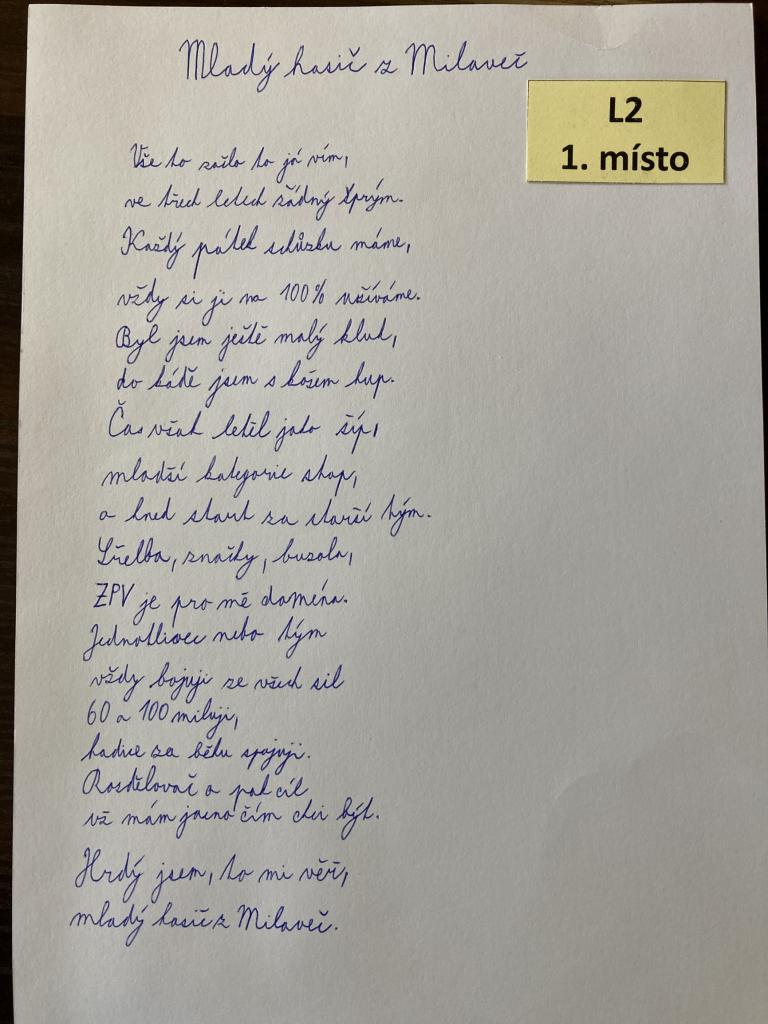 Mladý hasič z Milaveč
L2
1. místo
Vše to zašlo to já vím,
ve třech letech žádný šprým.
Každý pátek schůzku máme,
vždy si ji na 100% užíváme.
Byl jsem ještě malý kluk,
do kádě jsem s košem hup.
Čas však letěl jako šíp,
mladší kategorie stop,
a hned start za starší tým.
Střelba, značky, buzola,
ZPV je pro mě doména.
Jednotlivec nebo tým
vždy bojuji ze všech sil
60 a 100 miluji,
hadice za běhu spojuji.
Rozdělovač a pak cíl
už mám jasno čím chci být.
Hrdý jsem, to mi věř,
mladý hasič z Milaveč.